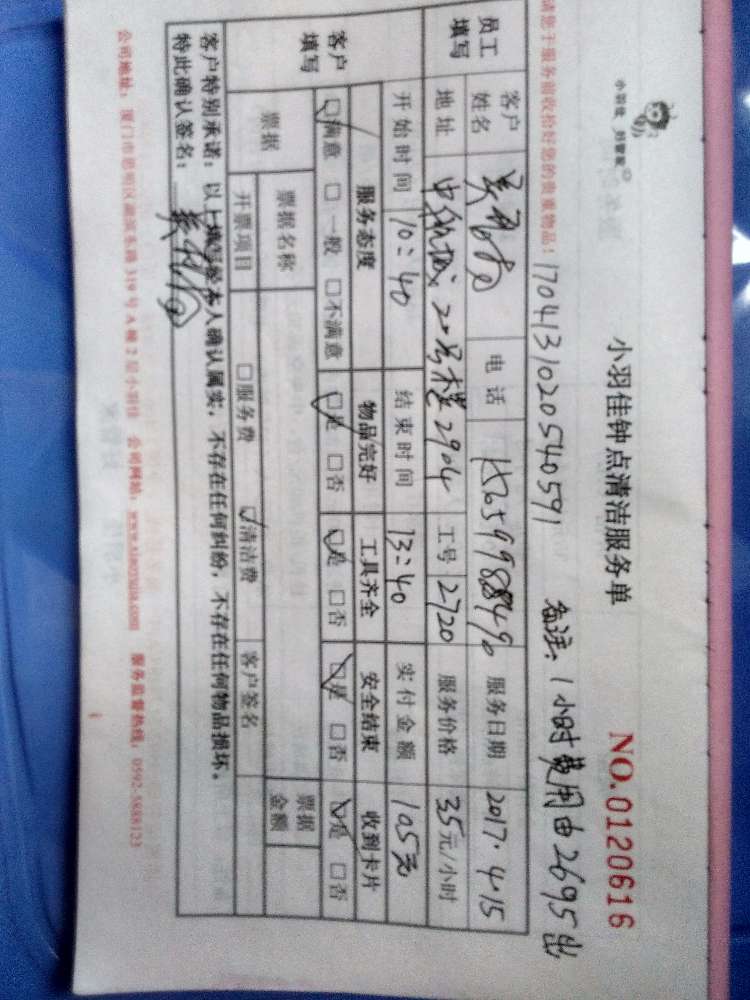 小羽佳 好管家
小羽佳钟点清洁服务单
NO.0120616
请您于服务前收拾好您的贵重物品!
1704131020540591
备注:1小时费用由2695出
员工填写
客户姓名
电话
服务日期 2017.4.15
地址 中航城 20号楼2904 工号 2720 服务价格 35元/小时
客户填写
开始时间 10:40 结束时间 13:40 实付金额 105元
服务态度 物品完好 工具齐全 安全结束 收到卡片
☑满意 □一般 □不满意 ☑是 □否 ☑是 □否 ☑是 □否 ☑是 □否
票据 票据名称 票据金额
开票项目 □服务费 ☑清洁费 客户签名
客户特别承诺:以上填写经本人确认属实,不存在任何纠纷,不存在任何物品损坏。
特此确认签名:
公司地址:厦门市思明区湖滨东路319号A幢2层小羽佳 公司网站:www.xiaoyujia.com 服务监督热线:0592-5888123